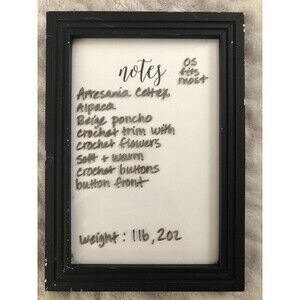 notes
OS
fits
most
Artesania Celtex
Alpaca
Beige poncho
crochet trim with
crochet flowers
soft + warm
crochet buttons
button front
weight: 1 lb, 2oz